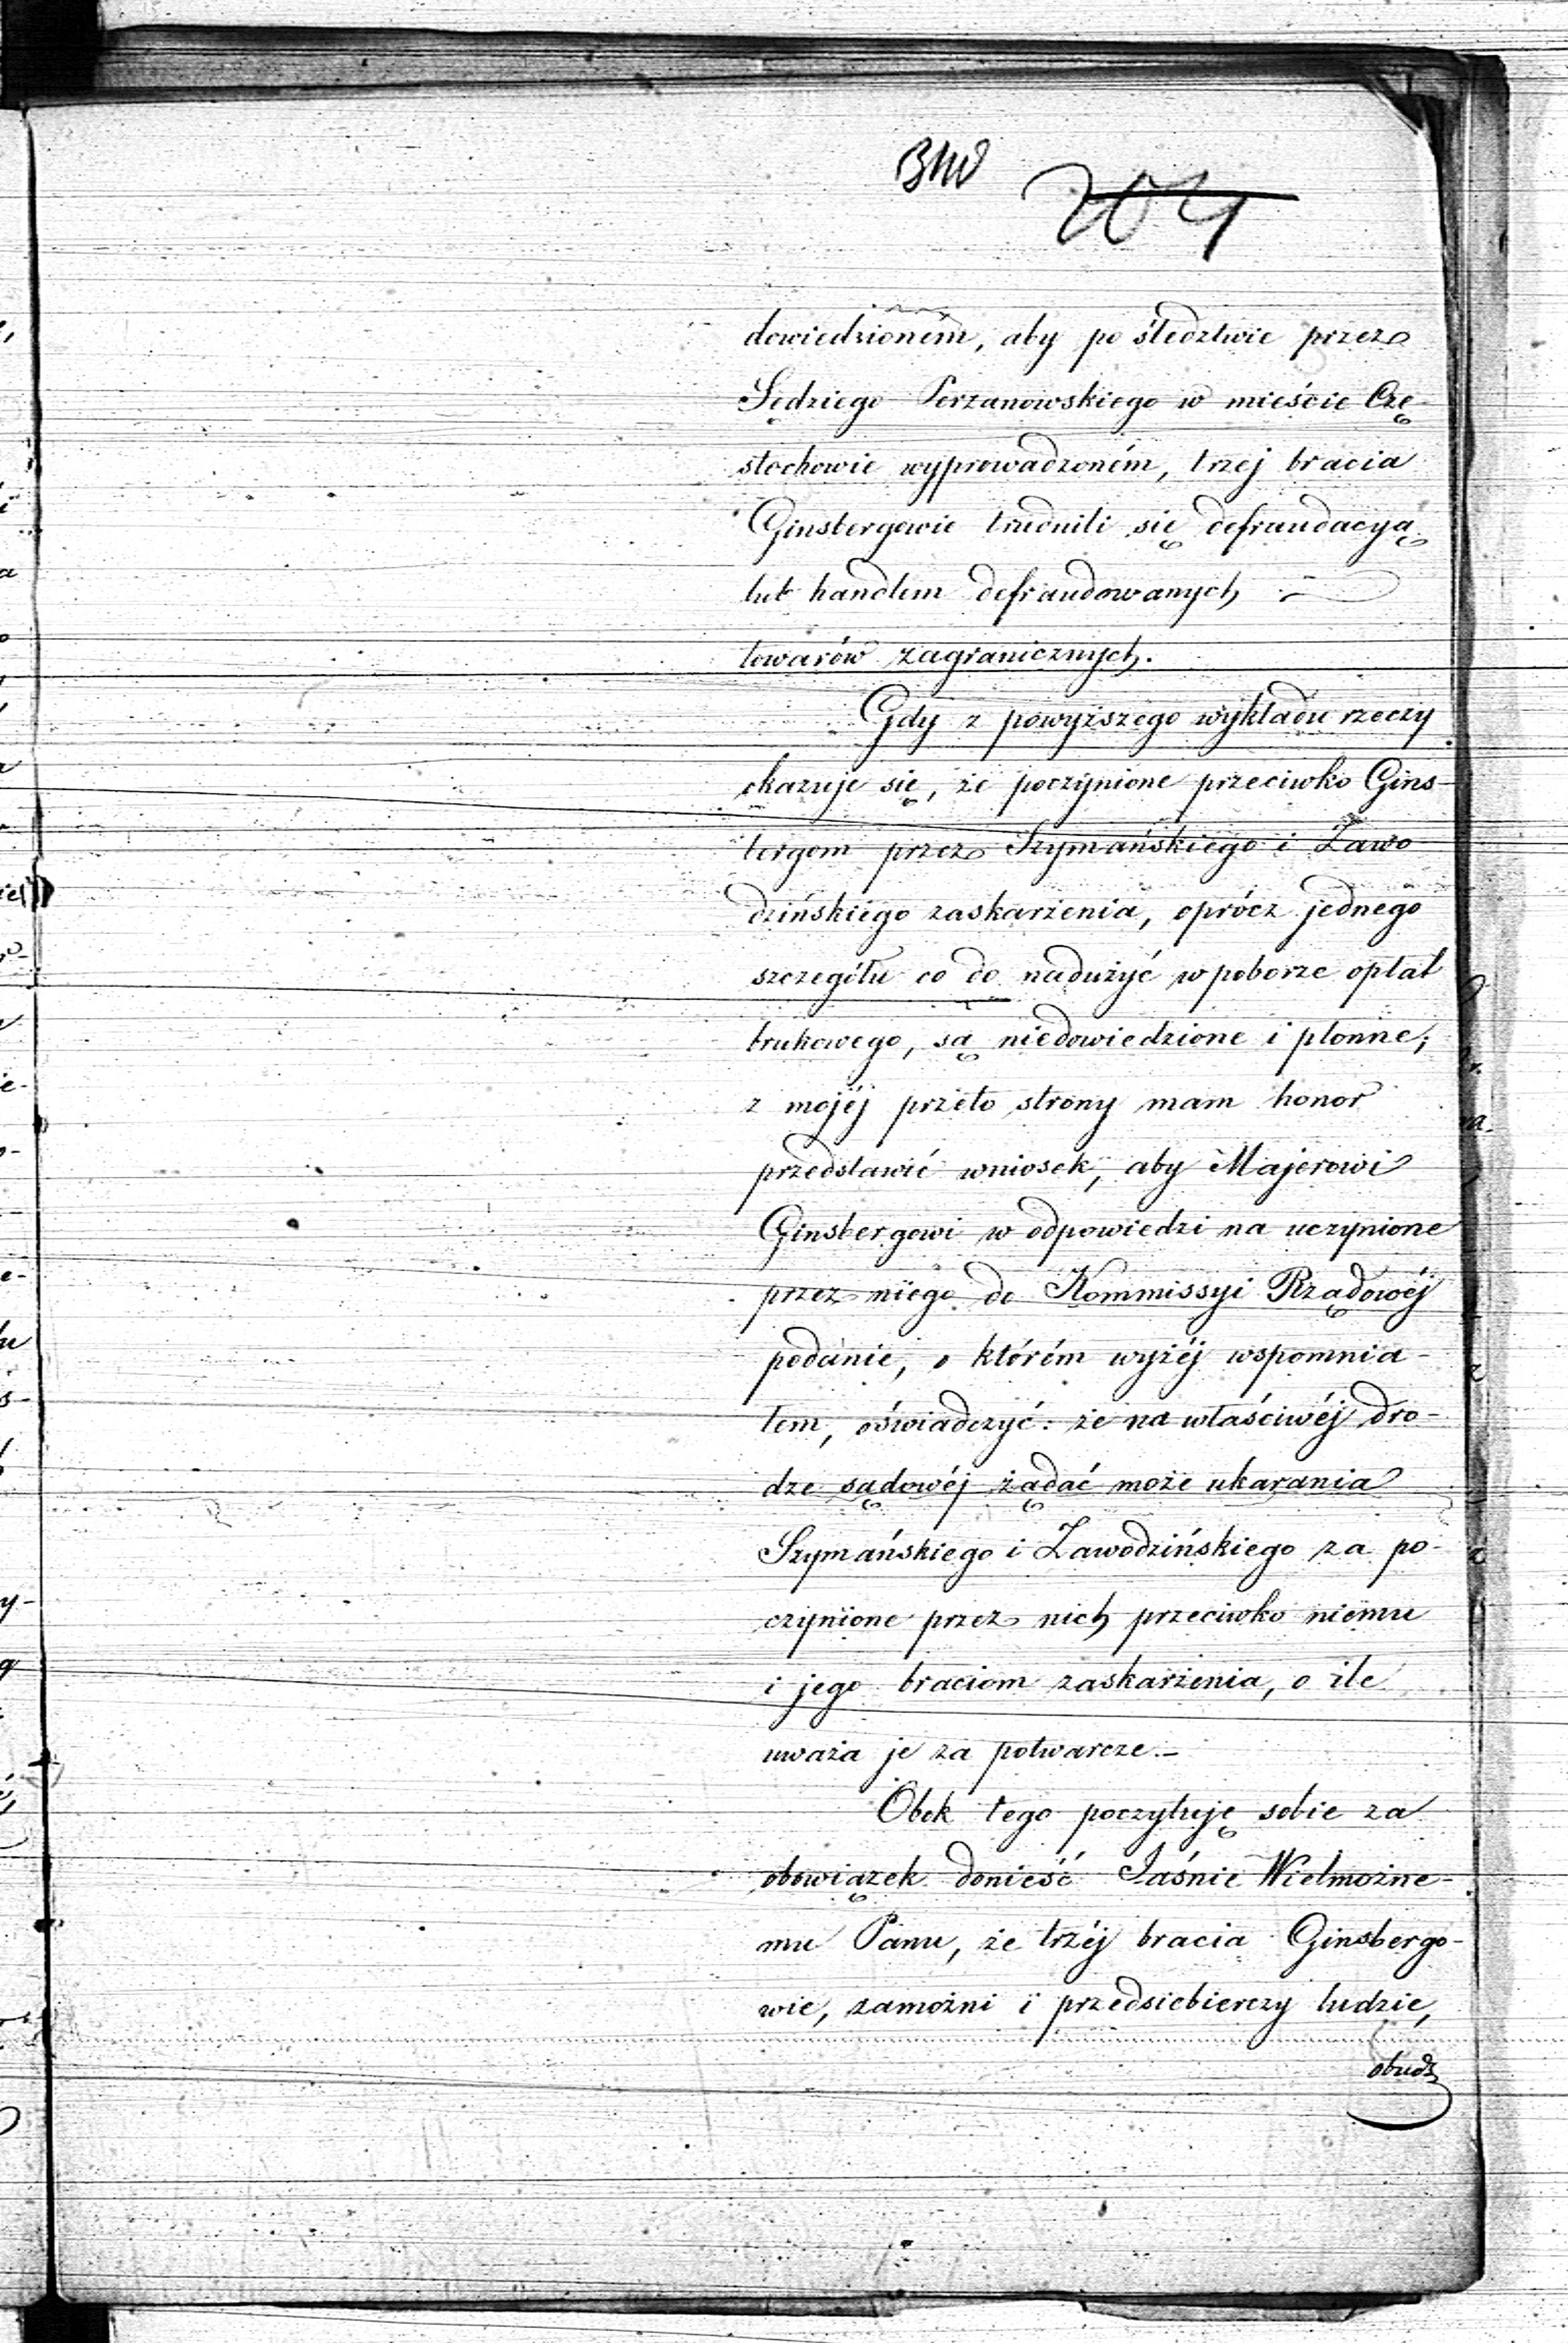 204
dowiedzioném, aby po śledztwie przez
Sędziego Perzanowskiego w mieście Czę-
stochowie wyprowadzoném, trzej bracia
Ginsbergowie trudnili się defraudacyą
lub handlem defraudowanych
towarów zagranicznych.
Gdy z powyższego wykładu rzeczy
okazuje się, że poczynione przeciwko Gins-
bergom przez Szymańskiego i Zawo-
dzińskiego zaskarżenia, oprócz jednego
szczegółu co do nadużyć w poborze opłat
brukowego, są niedowiedzione i płonne;
z mojéj przeto strony mam honor
przedstawić wniosek, aby Majerowi
Ginsbergowi w odpowiedzi na uczynione
przez niego do Kommissyi Rządowéj
podanie, o którém wyżéj wspomnia-
łem, oświadczyć: że na właściwéj dro-
dze sądowéj żądać może ukarania
Szymańskiego i Zawodzińskiego za po-
czynione przez nich przeciwko niemu
i jego braciom zaskarżenia, o ile
uważa je za potwarcze.-
Obok tego poczytuję sobie za
obowiązek donieść Jaśnie Wielmożne-
mu Panu, że trzéj bracia Ginsbergo-
wie, zamożni i przedsiebierczy ludzie,